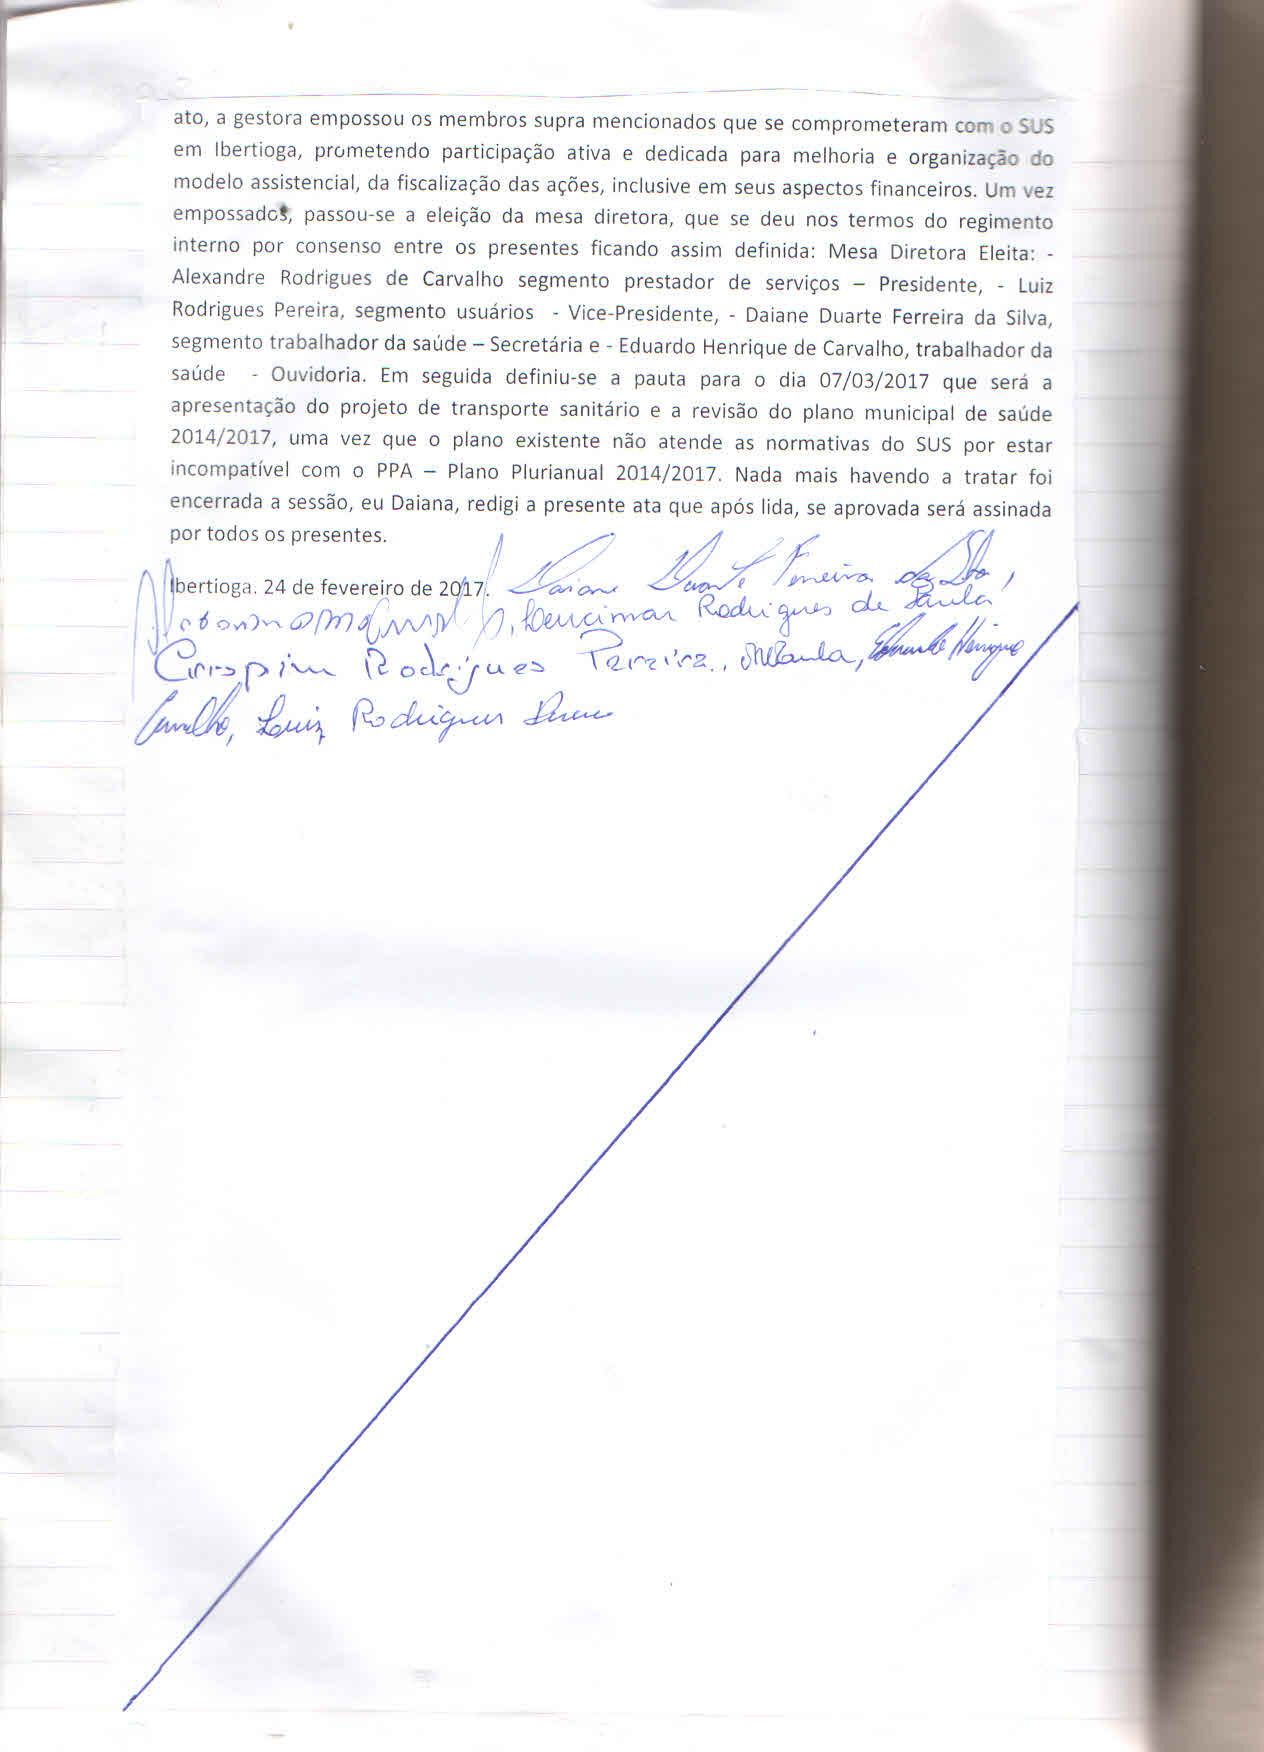 ato, a gestora empossou os membros supra mencionados que se comprometeram com o SUS
em Ibertioga, prometendo participação ativa e dedicada para melhoria e organização do
modelo assistencial, da fiscalização das ações, inclusive em seus aspectos financeiros. Um vez
empossados, passou-se a eleição da mesa diretora, que se deu nos termos do regimento
interno por consenso entre os presentes ficando assim definida: Mesa Diretora Eleita: -
Alexandre Rodrigues de Carvalho segmento prestador de serviços – Presidente, - Luiz
Rodrigues Pereira, segmento usuários - Vice-Presidente, - Daiane Duarte Ferreira da Silva,
segmento trabalhador da saúde – Secretária e - Eduardo Henrique de Carvalho, trabalhador da
saúde - Ouvidoria. Em seguida definiu-se a pauta para o dia 07/03/2017 que será a
apresentação do projeto de transporte sanitário e a revisão do plano municipal de saúde
2014/2017, uma vez que o plano existente não atende as normativas do SUS por estar
incompatível com o PPA – Plano Plurianual 2014/2017. Nada mais havendo a tratar foi
encerrada a sessão, eu Daiana, redigi a presente ata que após lida, se aprovada será assinada
por todos os presentes.
Ibertioga. 24 de fevereiro de 2017. Daiane Duarte Ferreira da Silva,
Rodrigues de Paula
Crispim Rodrigues Pereira, Eduardo Henrique
Carvalho, Luiz Rodrigues